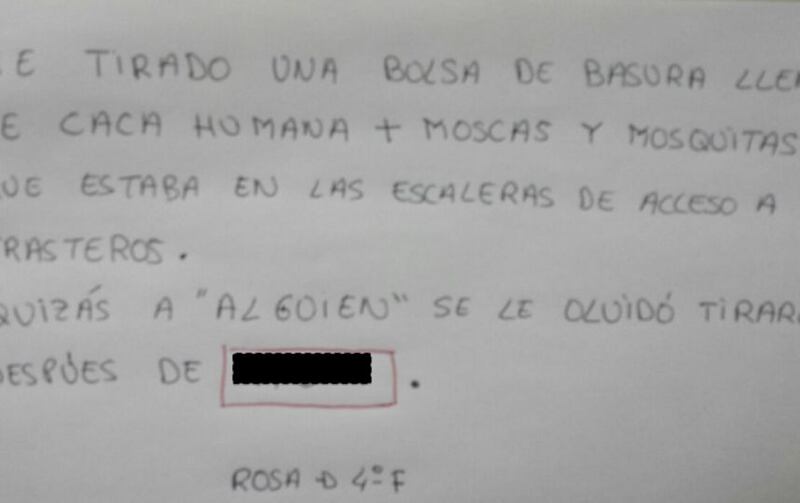 E TIRADO UNA BOLSA DE BASURA LLEN
E CACA HUMANA + MOSCAS Y MOSQUITAS
UE ESTABA EN LAS ESCALERAS DE ACCESO A
RASTEROS.
QUIZÁS A "ALGUIEN" SE LE OLVIDÓ TIRARL
DESPÚES DE .
ROSA D 4º F